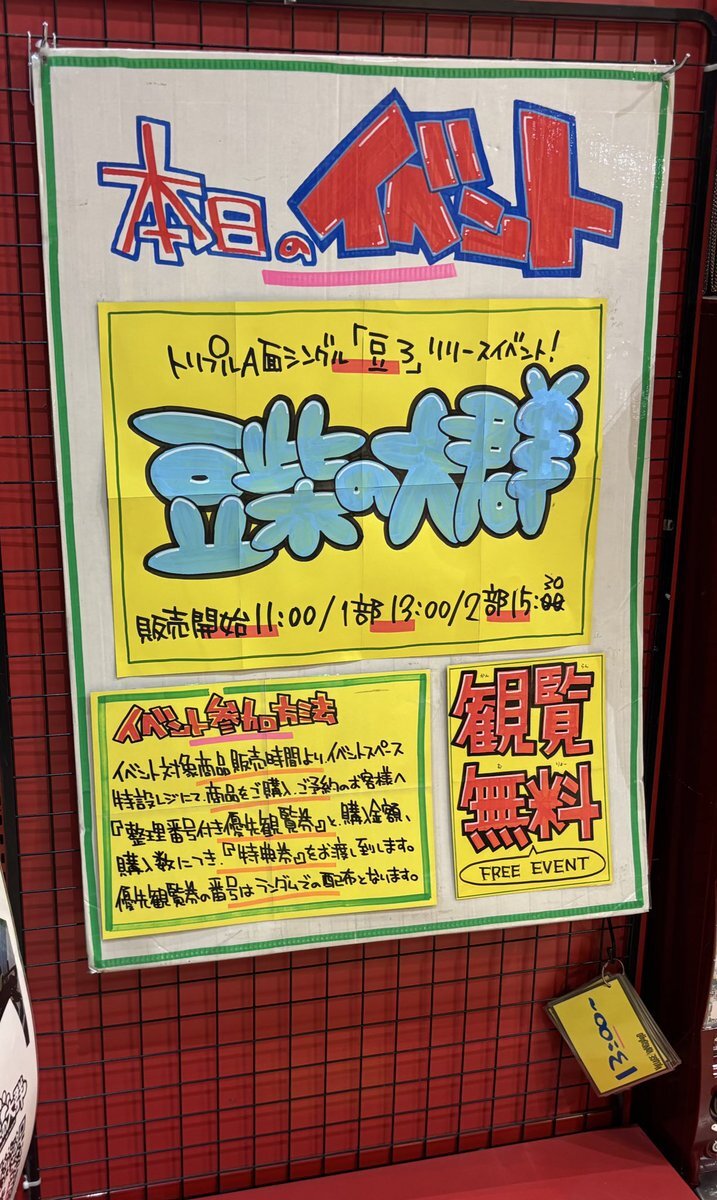 本日のイベント
トリプルA面シングル「豆3」リリースイベント!
豆柴の大群
販売開始11:00/1部13:00/2部15:30
イベント参加方法
イベント対象商品販売時間よりイベントスペース
特設レジにて商品をご購入、ご予約のお客様へ
『整理番号付き優先観覧券』と、購入金額、
購入数につき、『特典券』をお渡し致します。
優先観覧券の番号はランダムでの配布となります。
かん らん
観覧
む りょー
無料
FREE EVENT
13:00~